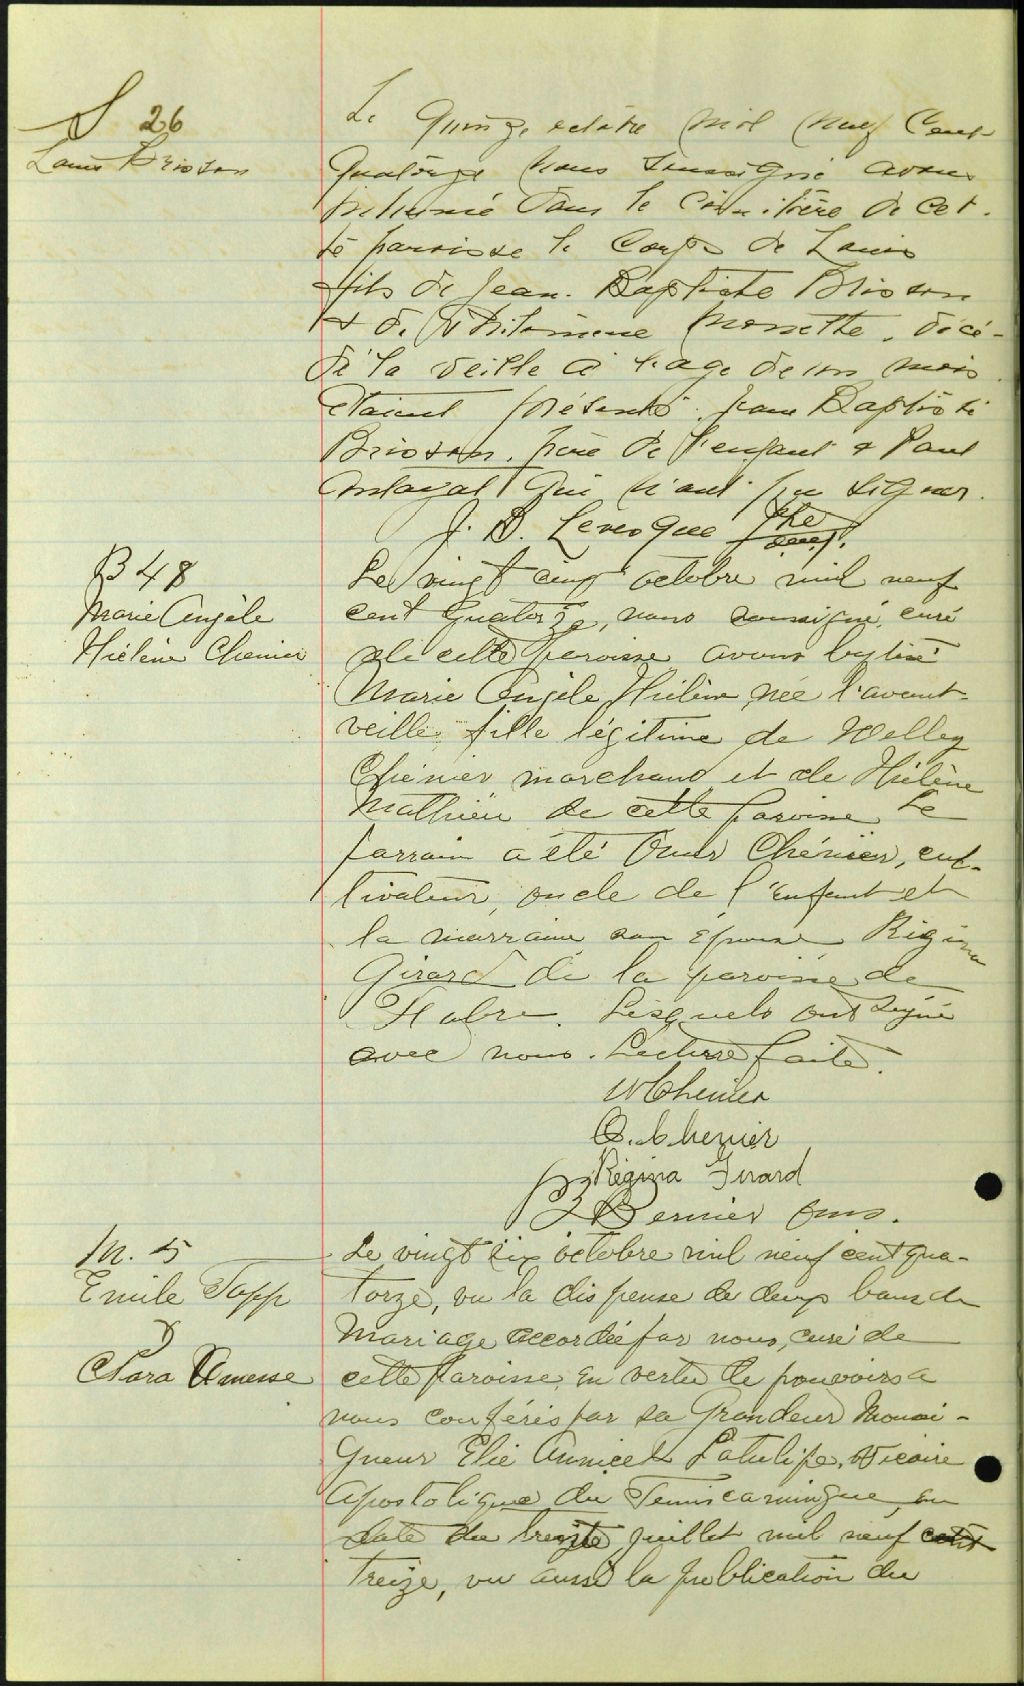 S 26
Louis Brisson
Le quinze octobre mil neuf cent
quatorze nous soussigné avons
inhumé dans le cimetière de cet-
te paroisse le corps de Louis
fils de Jean-Baptiste Brisson
& de Philomène Monette, décé-
dé la veille à l'age de un mois.
Étaient présents Jean Baptiste
Brisson, père de l'enfant & Paul
qui n'ont pu signer.
J. D. Levesque Ptre
B 48
Marie Angèle
Hélène Chenier
Le vingt cinq octobre mil neuf
cent quatorze, nous soussigné, curé
de cette paroisse avons baptisé
Marie Angèle Hélène née l'avant-
veille, fille légitime de Welley
Chénier marchand et de Hélène
Mathieu de cette paroisse Le
parrain a été Omer Chénier, cul-
tivateur, oncle de l'enfant et
la marraine son épouse Régina
Girard de la paroisse de
Fabre. Lesquels ont signé
avec nous. Lecture faite.
W Chenier
O. Chenier
Régina Girard
Bernier omi.
M. 5
Emile Topp
&
Clara Amesse
Le vingt six octobre mil neuf cent qua-
torze, vu la dispense de deux bans de
mariage accordée par nous, curé de
cette paroisse, en vertu de pouvoirs a
nous conférés par sa Grandeur Monsei-
gneur Elie Annicet Latulipe, Vicaire
Apostolique du Temiscamingue, en
date du trente juillet mil neuf cent
treize, vu aussi la publication du